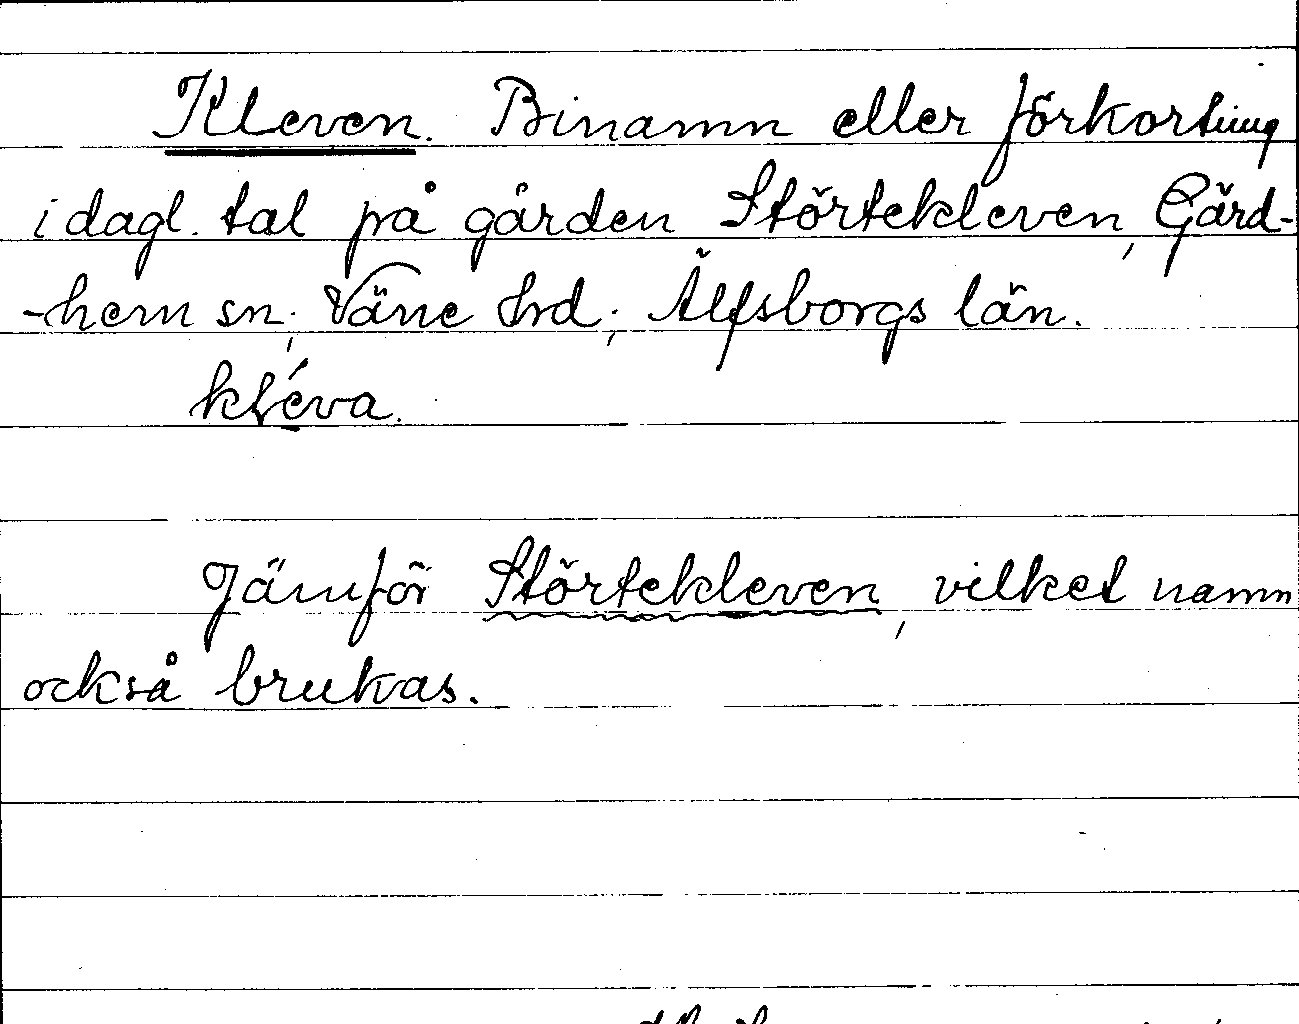 Kleven. Binamn eller förkortning
i dagl. tal på gården Störtekleven, Gärd-
-hem sn; Väne hrd; Älfsborgs län.
kléva.
Jämför Störtekleven, vilket namn
också brukas.